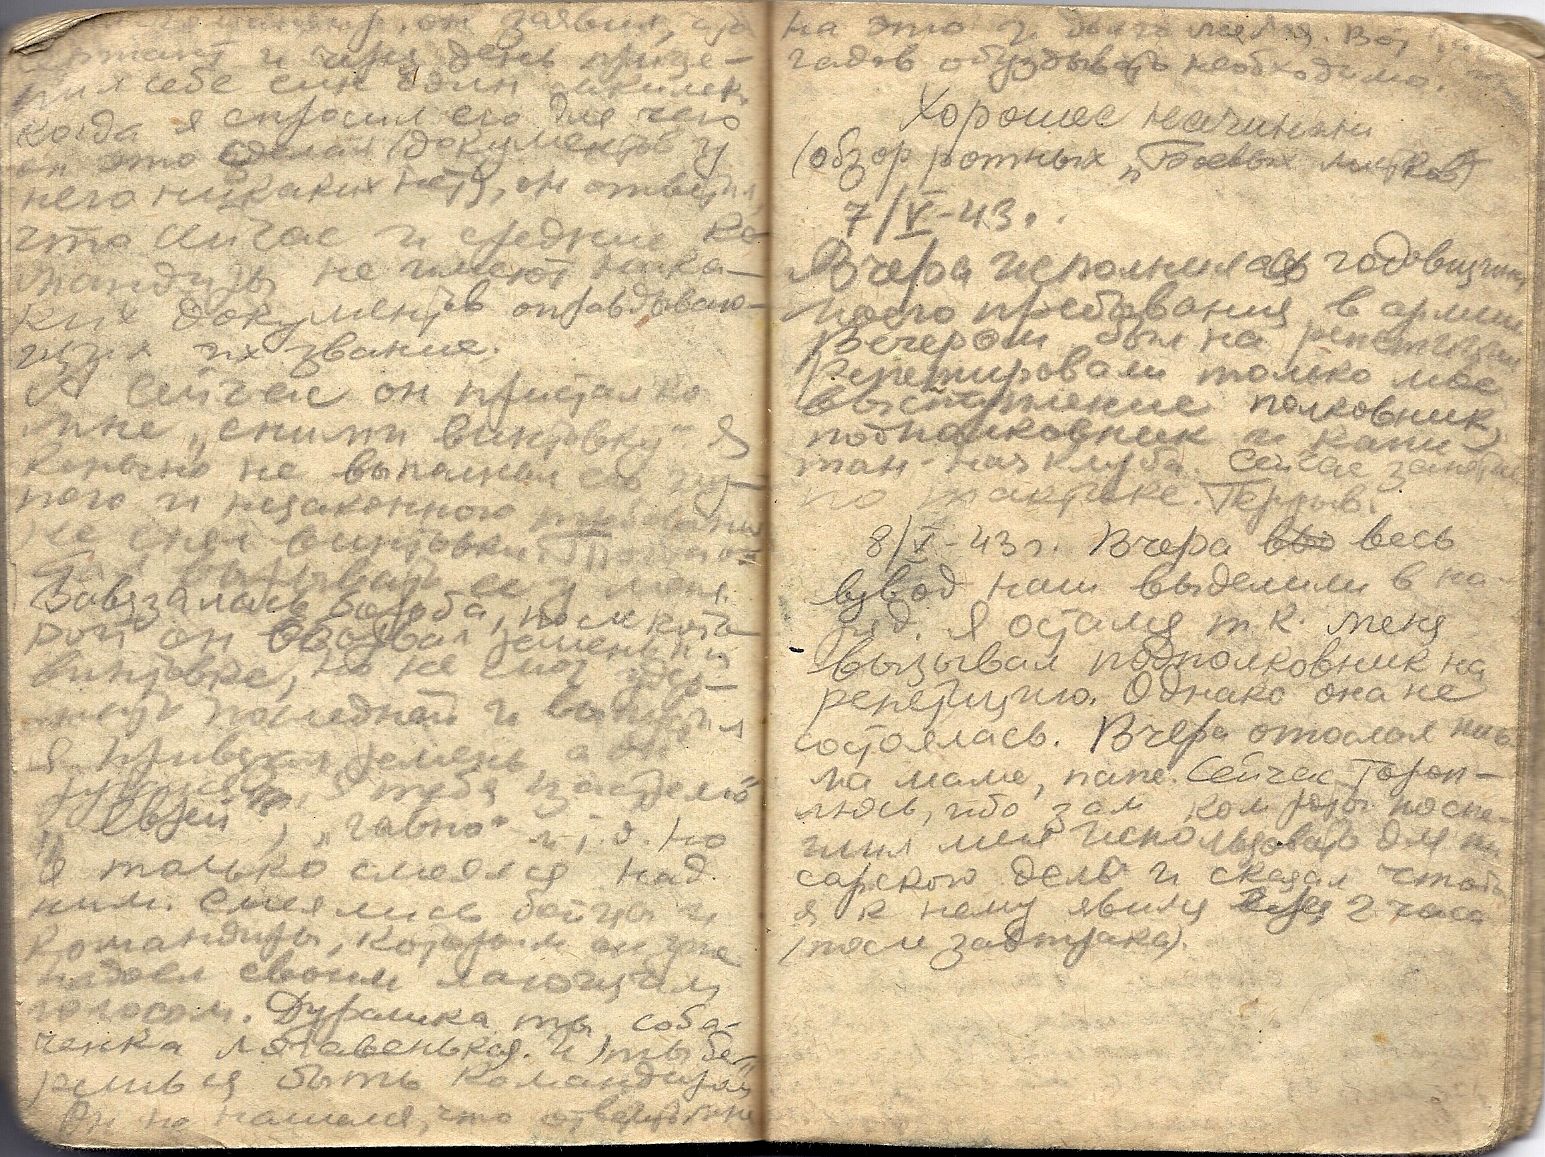 он заявил,
и через день прице-
пил себе ещё один
когда я спросил его для чего
он это сделал (документов у
него никаких нет), он ответил
что сейчас и средние ко-
мандиры не имеют ника-
ких документов оправдываю-
щих их звание.
А сейчас он пристал ко
мне „сними винтовку“ Я
конечно не выполнил его глу-
пого и незаконного требования
не снял винтовки. Тогда он
стал вырывать её у меня
Завязалась борьба, после кото-
рой он оборвал ремень на
винтовке, но не смог удер-
жать последней и выпустил
я привязал ремень а он
ругался, я тебя
„Еврей“, „гавно“ и т.д. но
я только смеялся над
ним. Смеялись бойцы и
командиры, которым он уже
надоел своим лающим
голосом. Дурашка ты, соба-
ченка лягавенькая. И ты бе-
решься быть командиром
Он не нашелся, что ответить мне
на это и долго
гадов обуздывать необходимо.
Хорошее начинани
(обзор ротных „Боевых листков“)
7/V-43г.
Вчера исполнилась годовщина
моего пребывания в армии
Вечером был на репетиции
Репетировали только мое
выступление полковник,
подполковник и капи-
тан - нач клуба. Сейчас занятия
по тактике. Перрыв.
8/V-43г. Вчера весь
взвод наш выделили в на-
ряд. Я остался т.к. меня
вызывал подполковник на
репетицию. Однако она не
состоялась. Вчера отослал
ма маме, папе. Сейчас тороп-
люсь, ибо зам ком роты поспе-
шил меня использовать для пи
сарского дела и сказал чтобы
я к нему явился 2 часа
(после завтрака).